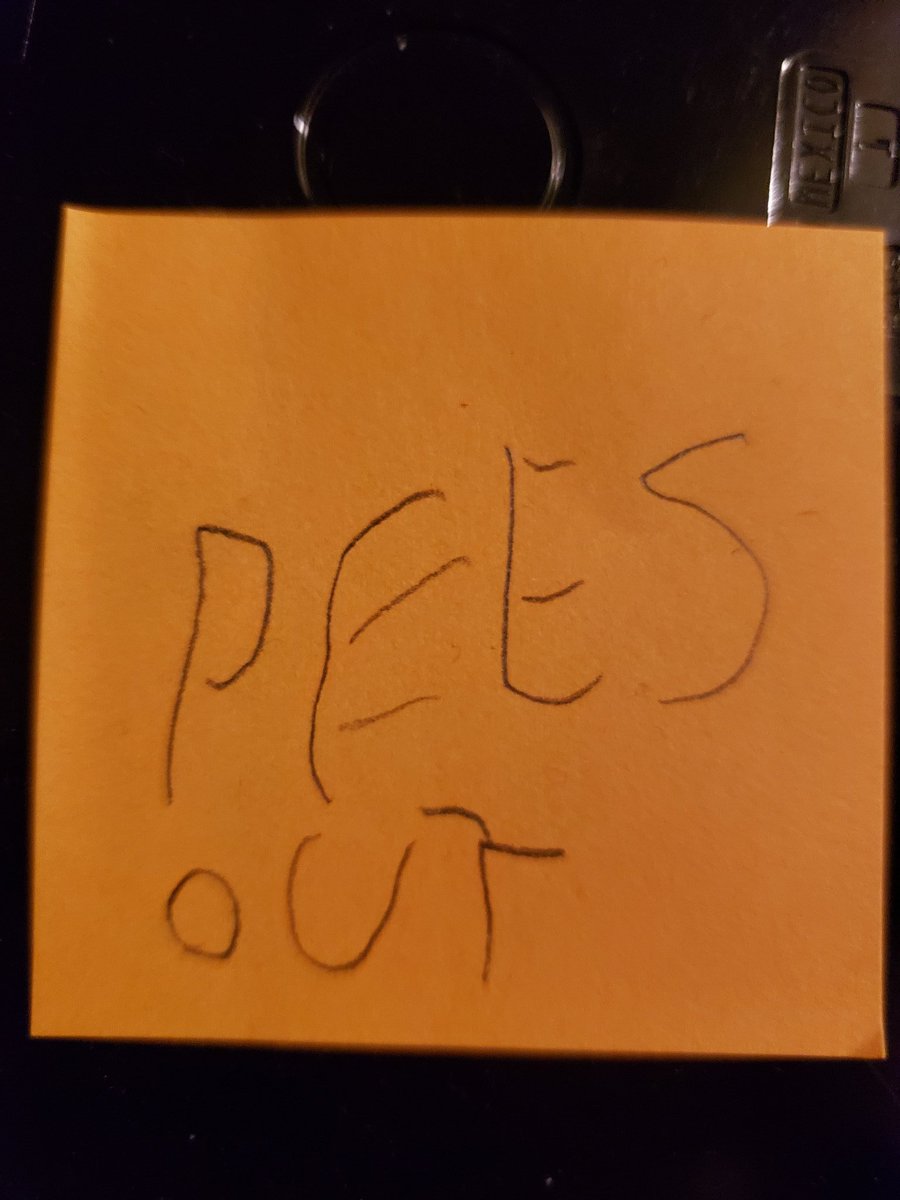 MEXICO
PEES
OUT